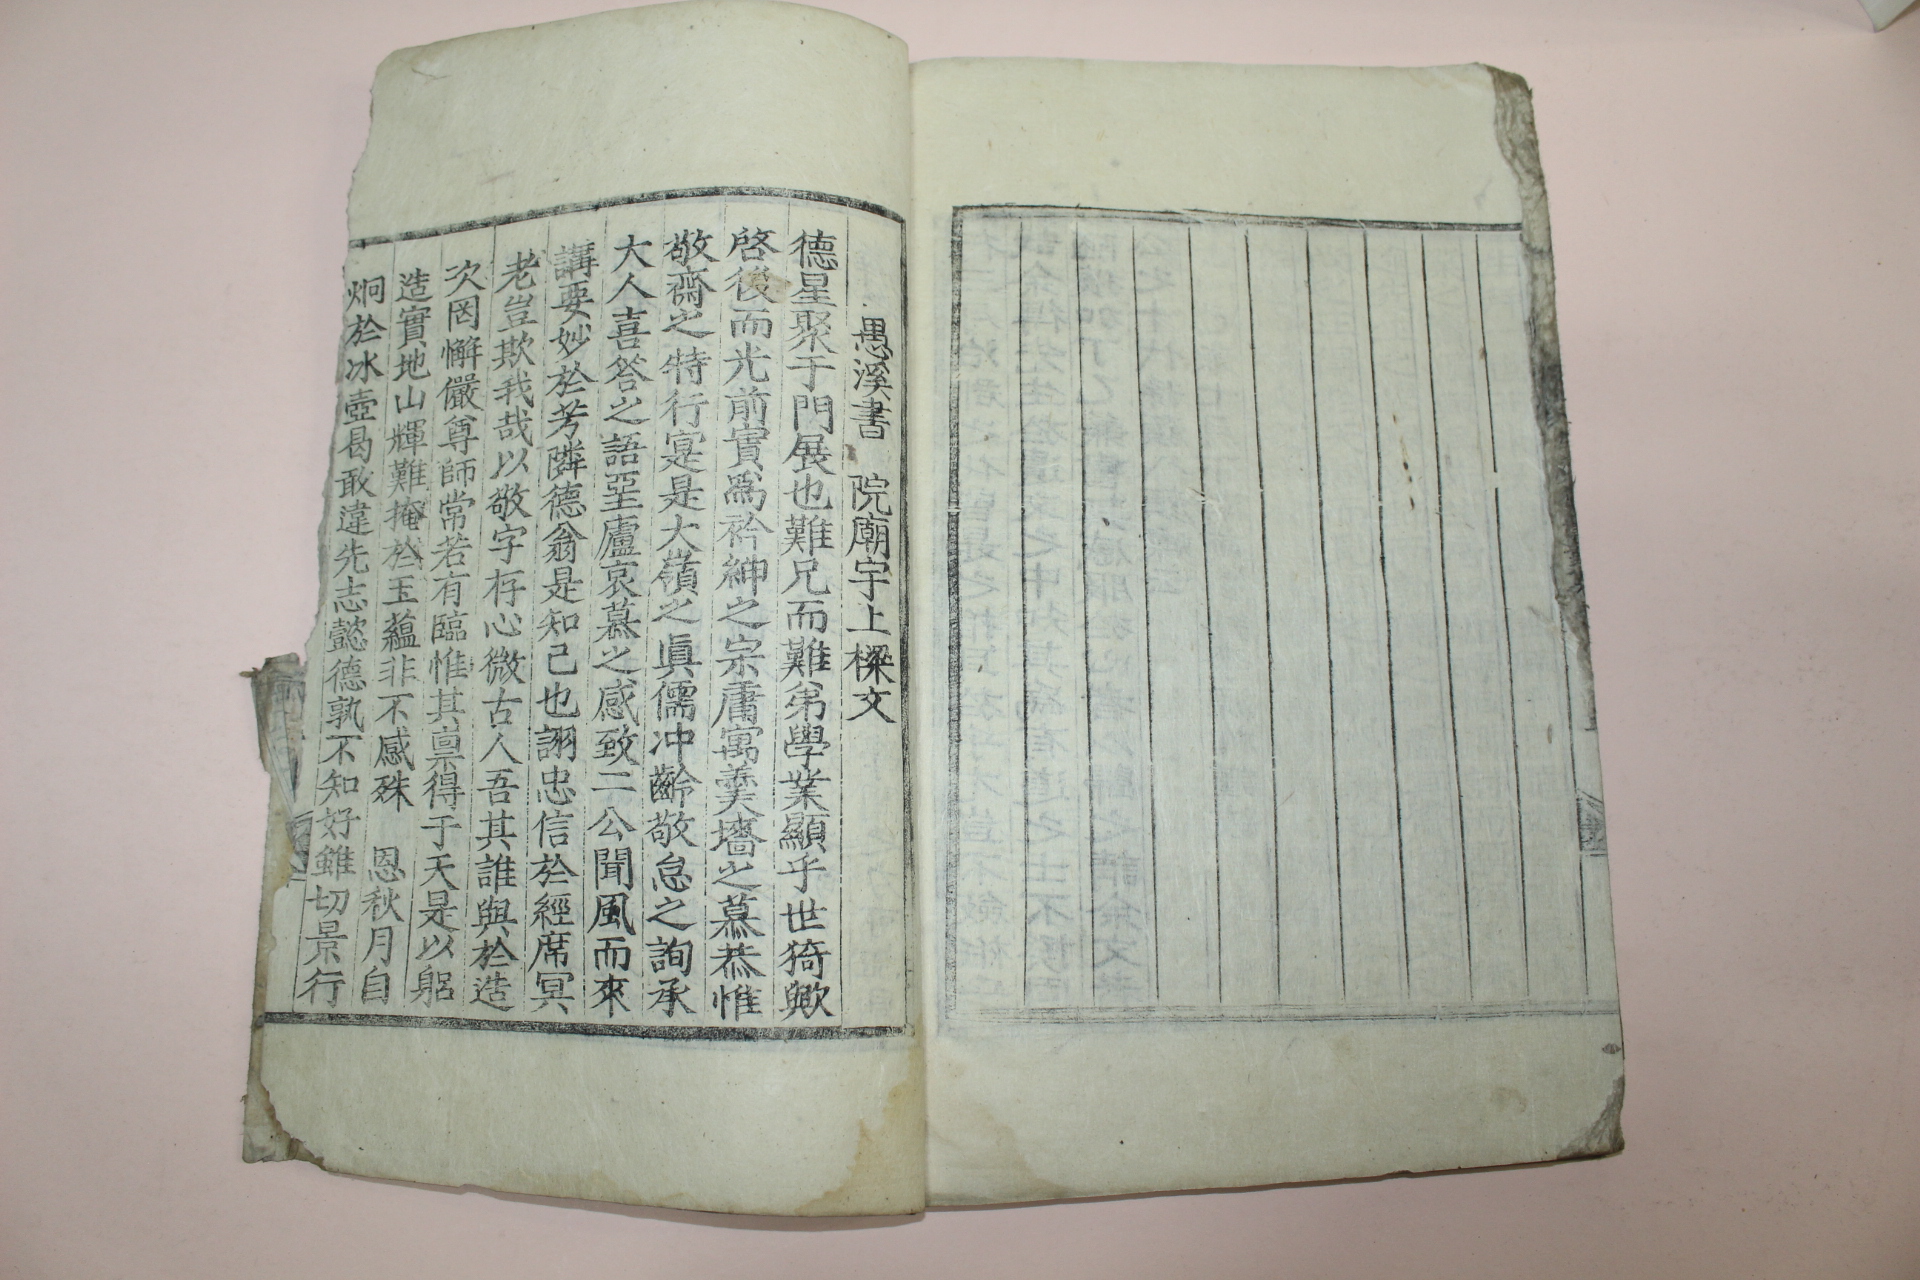 愚溪書　院廟宇上樑文
德星聚于門展也難兄而難弟學業顯乎世猗歟
啓後而光前實爲衿紳之宗庸寓羹墻之慕恭惟
敬齋之特行寔是大嶺之眞儒冲齡敬怠之詢承
大人喜答之語堊廬哀慕之感致二公聞風而來
講要妙於芳隣德翁是知己也詡忠信於經席冥
老豈欺我哉以敬字存心微古人吾其誰與於造
次罔懈儼尊師常若有臨惟其禀得于天是以躬
造實地山輝難掩於玉蘊非不感殊　恩秋月自
炯於冰壺曷敢違先志懿德孰不知好雖切景行